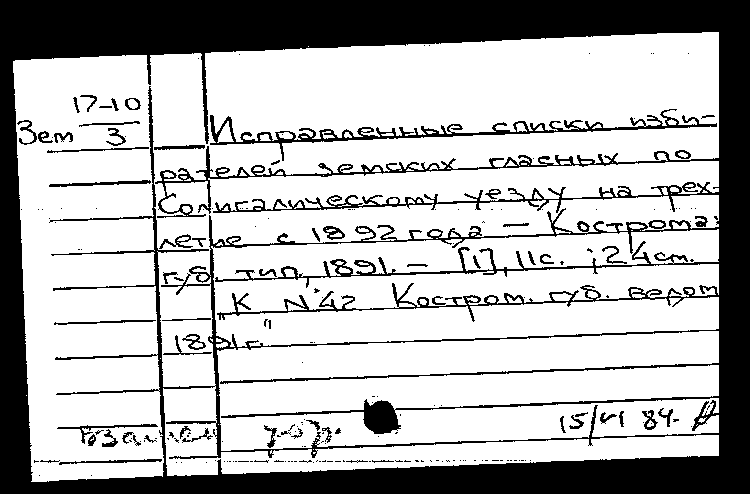 17-10
Зем 3
Исправленные списки изби-
рателей земских гласных по
Солигалическому уезду на трех-
летие с 1892 года — Кострома:
губ. тип., 1891. — [1], 11с. ; 24см.
"К №42 Костром. губ. ведом
1891г."
взамен
15/VI 84.